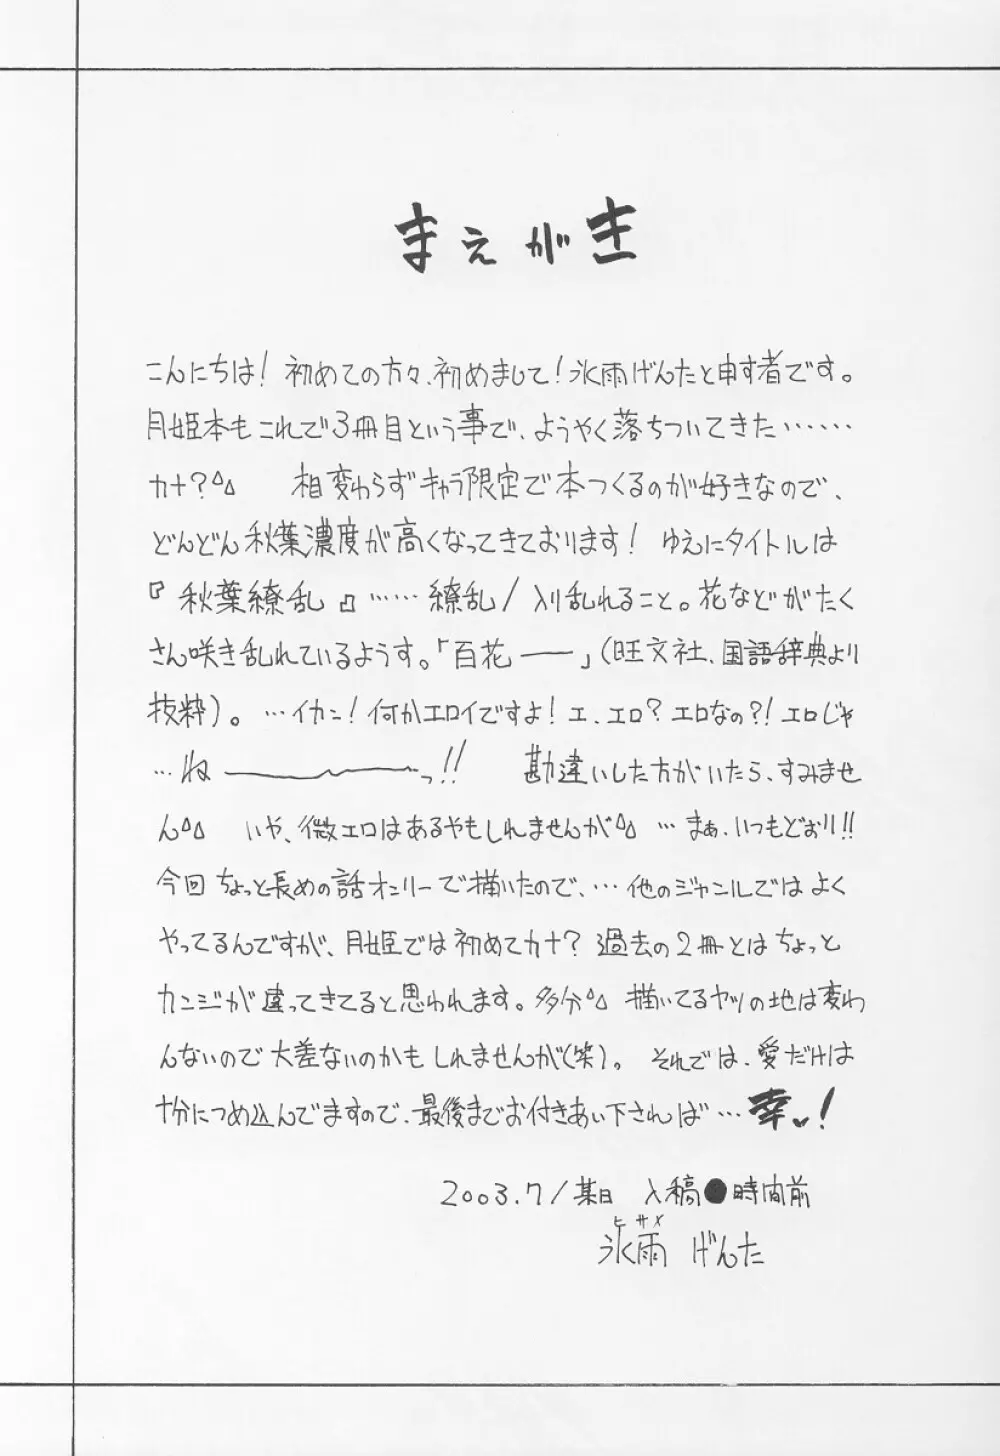 まえがき
こんにちは! 初めての方々、初めまして! 氷雨げんたと申す者です。
月姫本もこれで3冊目という事で、ようやく落ちついてきた……
カナ?^△ 相変わらずキャラ限定で本つくるのが好きなので、
どんどん秋葉濃度が高くなってきております! ゆえにタイトルは
『秋葉繚乱』……繚乱/入り乱れること。花などがたく
さん咲き乱れているようす。「百花――」(旺文社、国語辞典より
抜粋)。…イカン! 何かエロイですよ! エ、エロ? エロなの?! エロじゃ
…ね――――っ!! 勘違いした方がいたら、すみませ
ん^△ いや、微エロはあるやもしれませんが^△ …まぁ、いつもどおり!!
今回ちょっと長めの話オンリーで描いたので、…他のジャンルではよく
やってるんですが、月姫では初めてカナ? 過去の2冊とはちょっと
カンジが違ってきてると思われます。多分^△ 描いてるヤツの地は変わ
んないので大差ないのかもしれませんが(笑)。それでは、愛だけは
十分につめ込んでますので、最後までお付きあい下されば…幸っ!
2003.7/某日 入稿●時間前
ヒサメ
氷雨 げんた